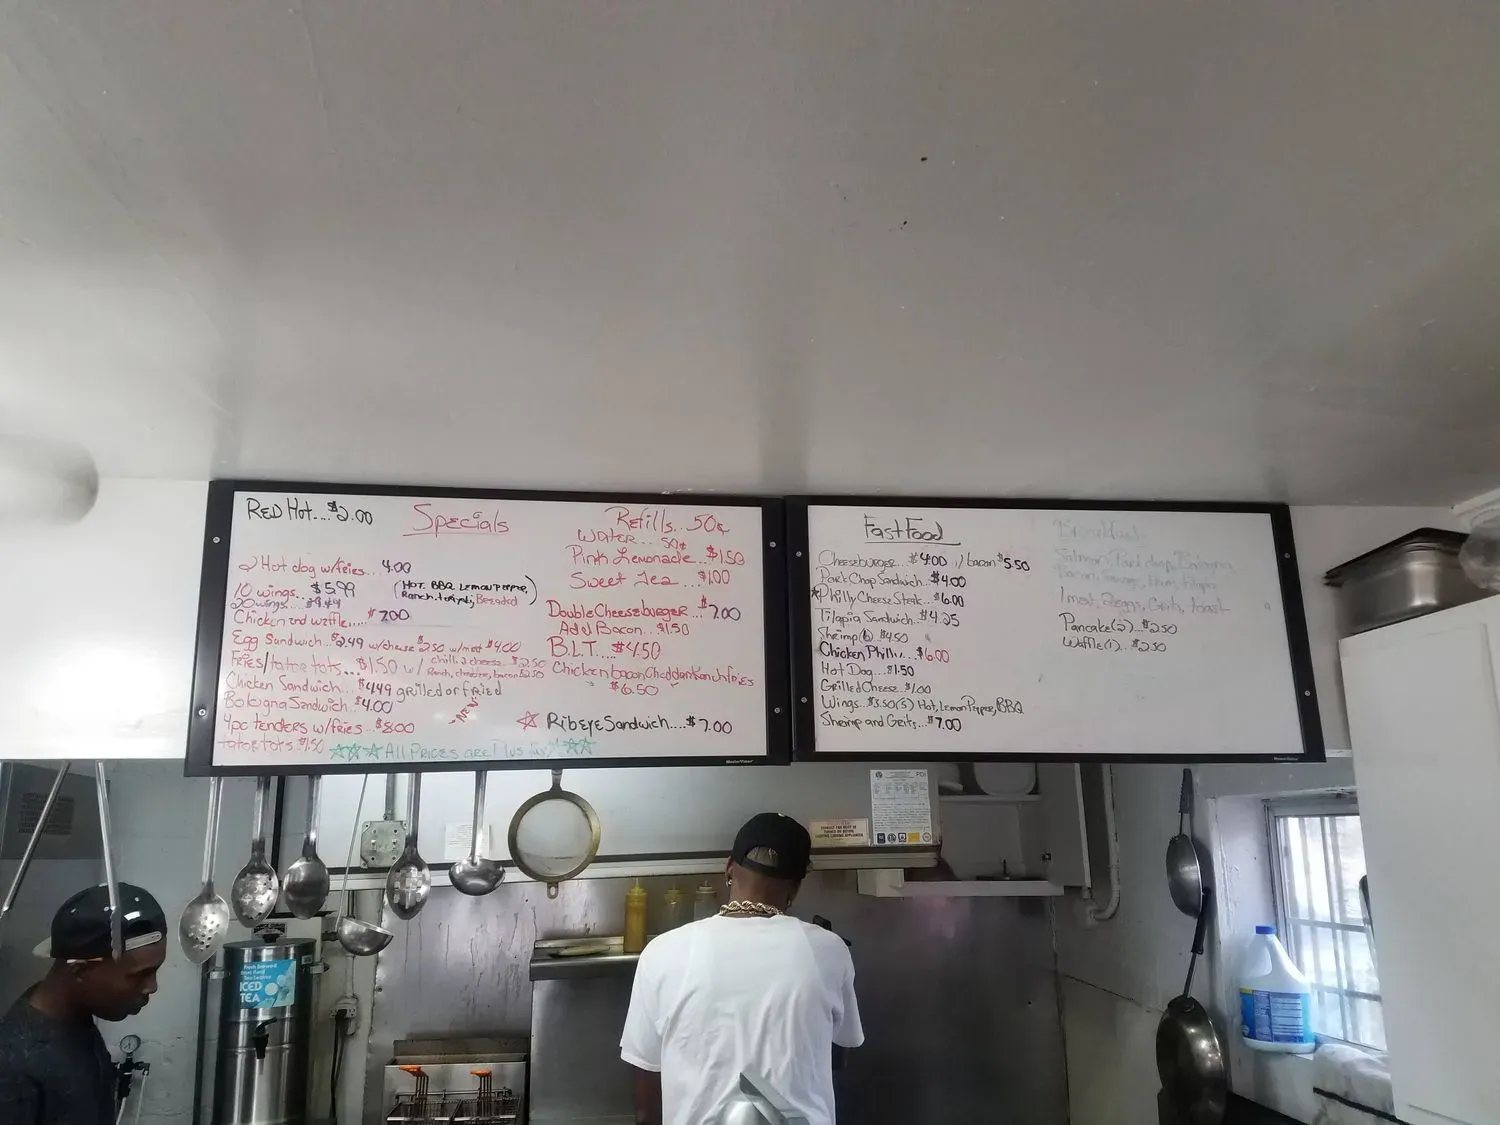 RED Hot....$2.00
Specials
Refills..50¢
Water... 50¢
Pink Lemonade..$1.50
Sweet Tea...$1.00
2 Hot dog w/fries...4.00
10 wings..$5.99
20 wings...
(Hot, BBQ, Lemon Pepper,
Ranch, teriyaki, Breaded)
Chicken and waffle,....$7.00
Egg Sandwich...$2.49 w/cheese $2.50 w/meat $4.00
Fries/tator tots.$1.50 w/ chilli & cheese..$2.50
Ranch, cheddar, bacon $2.50
Chicken Sandwich...$4.49 grilled or fried
Bologna Sandwich..$4.00
4pc tenders w/fries..$8.00
tator tots $1.50
"NEW"
Double Cheeseburger..$7.00
Add Bacon...$1.50
B.L.T...$4.50
Chicken bacon Cheddar Ranch fries
$6.50
Ribeye Sandwich....$7.00
All Prices are Plus Tax
MasterVision
Fast Food
Cheeseburger..$4.00 / bacon $5.50
Pork Chop Sandwich..$4.00
Philly Cheese Steak..$6.00
Tilapia Sandwich..$4.25
Shrimp(6) $4.50
Chicken Philly..$6.00
Hot Dog...$1.50
Grilled Cheese..$1.00
Wings..$3.50(5) Hot, Lemon Pepper, BBQ
Shrimp and Grits..$7.00
Breakfast
Salmon, Pork chop, Bologna
Bacon, Sausage, Ham, Tilapia
1 meat, 2 eggs, Grits, toast
Pancake(2)..$2.50
Waffle(1)..$2.50
MasterVision
ICED
TEA